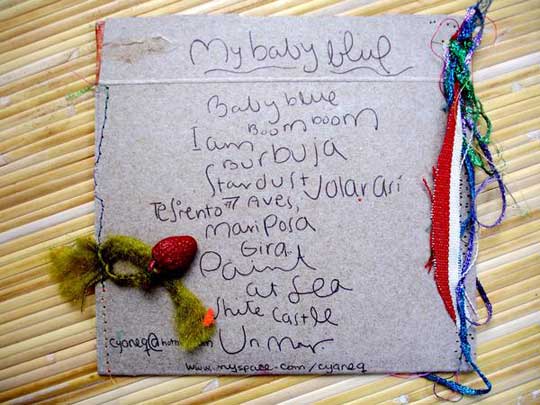 My baby blue
Baby blue
Boom boom
I am
Burbuja
Stardust Volar así
Te siento 7 Aves,
Mariposa
Gira
Paint
at Sea
White Castle
Un mar
www.myspace.com/cyaneq